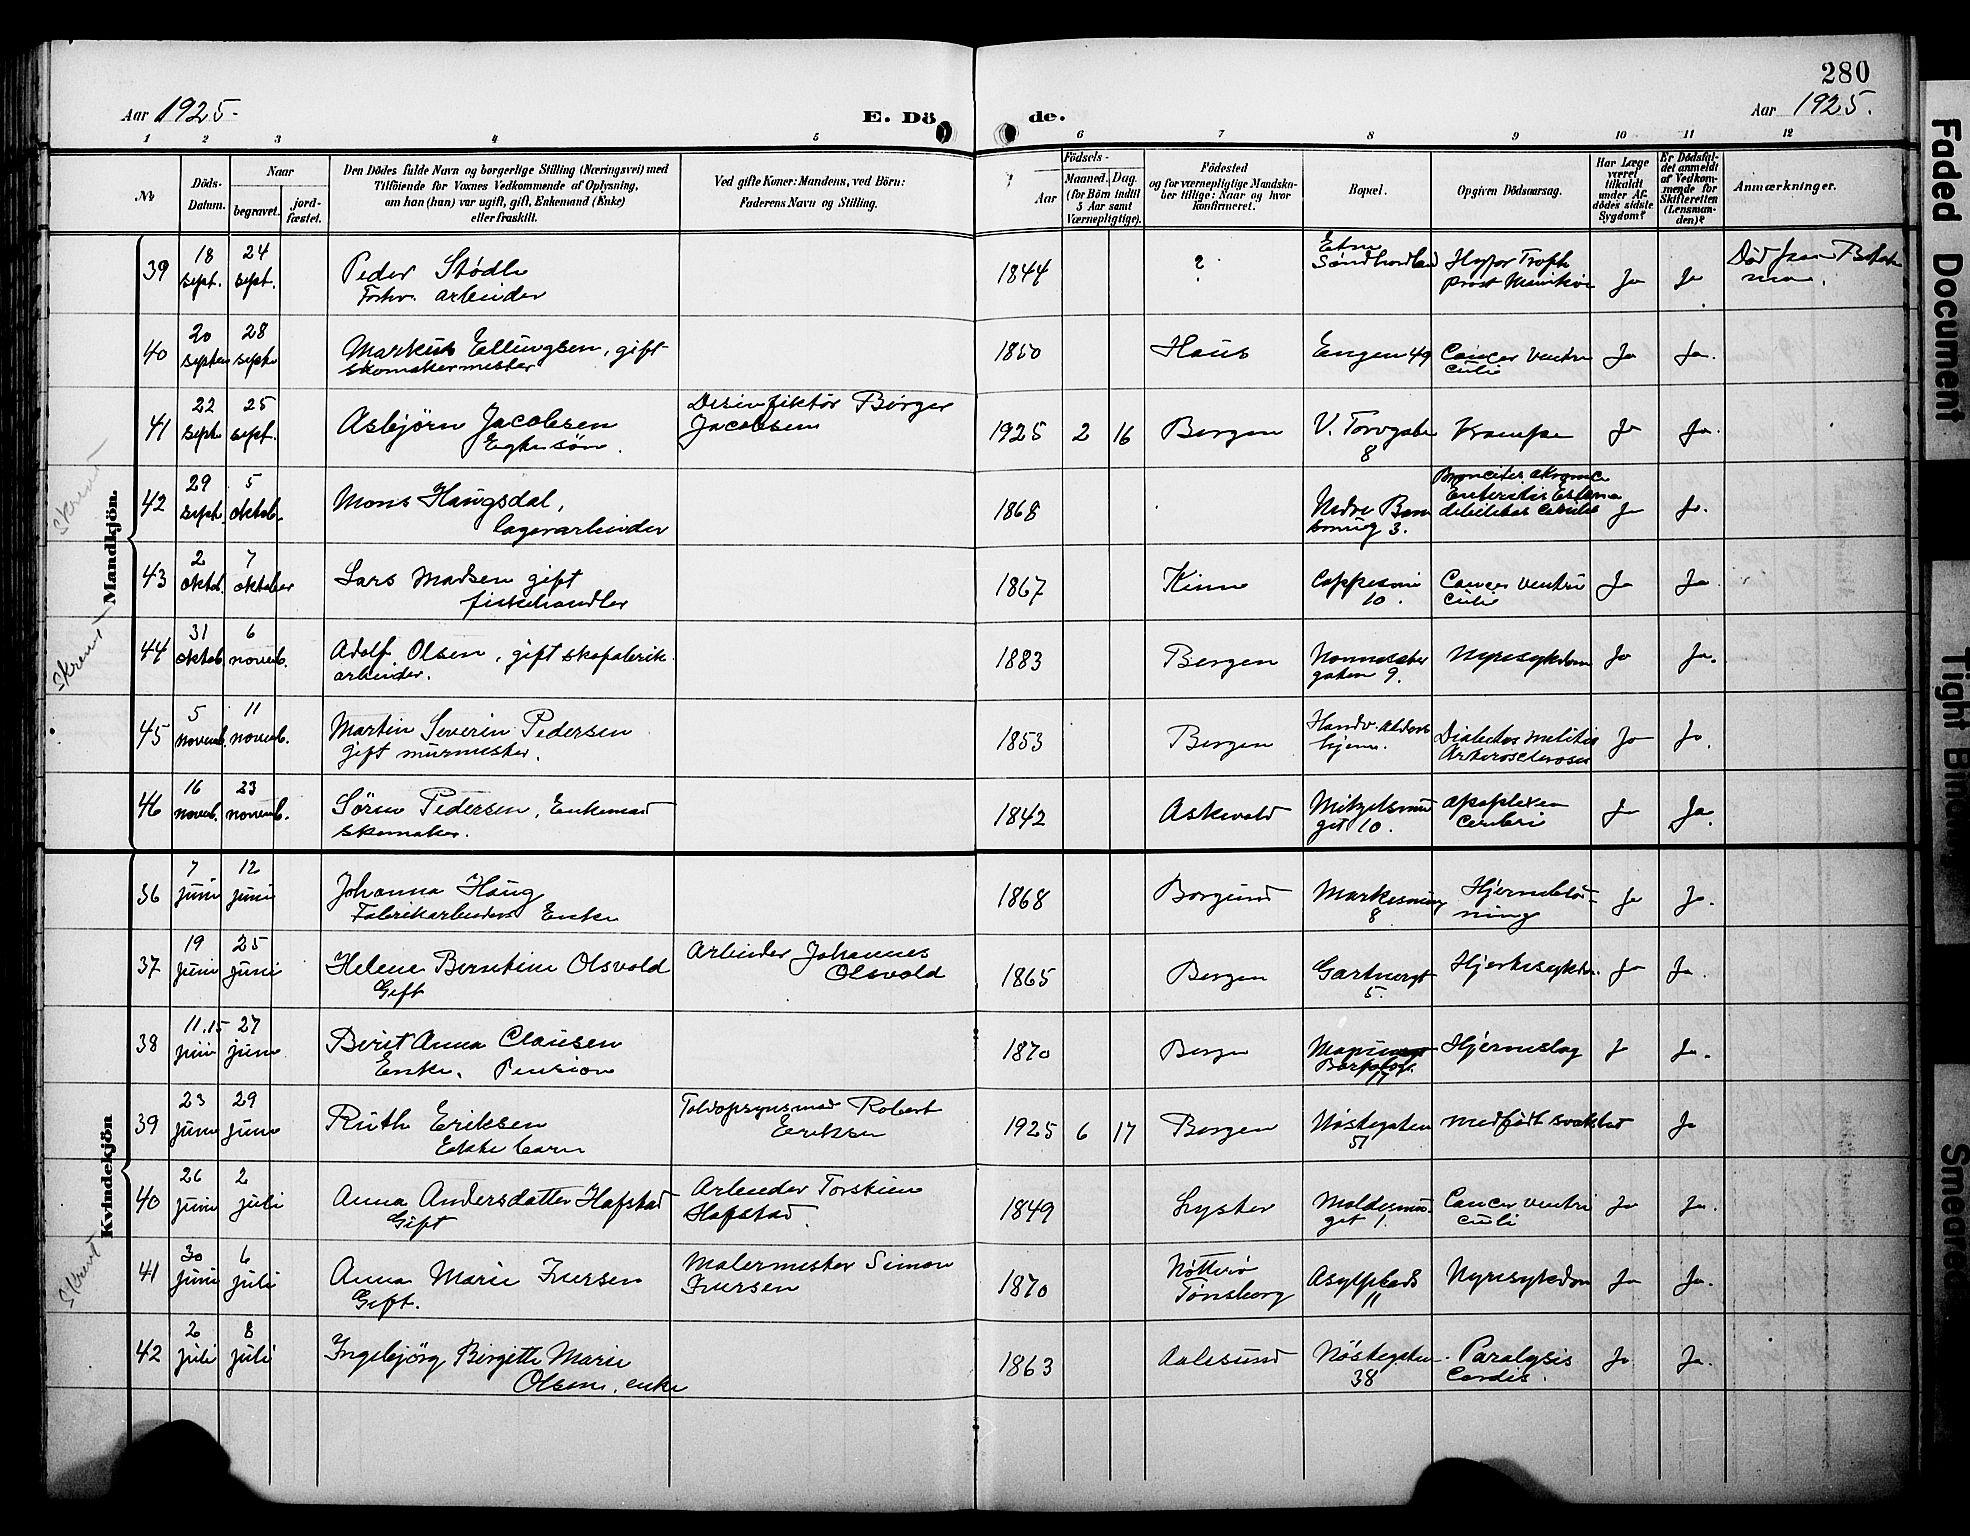 280
Aar 1925.
E. Döde.
Aar 1925.
1 2 3 4 5 6 7 8 9 10 11 12
No
Döds-Datum.
Naar
begravet.
jord-fæstet.
Den Dödes fulde Navn og borgerlige Stilling (Næringsvei) med
Tilföiende for Voxnes Vedkommende af Oplysning,
om han (hun) var ugift, gift, Enkemand (Enke)
eller fraskilt.
Ved gifte Koner: Mandens, ved Börn:
Faderens Navn og Stilling.
Födsels-
Aar
Maaned. Dag.
(for Börn indtil
5 Aar samt
Værnepligtige).
Födested
og for værnepligtige Mandska-
ber tillige: Naar og hvor
konfirmeret.
Bopæl.
Opgiven Dödsaarsag.
Har Læge
været
tilkaldt
under Af-
dödes sidste
Sygdom?
Er Dödsfal-
det anmeldt
af Vedkom-
mende for
Skifteretten
(Lensman-
den)?
Anmærkninger.
Mandkjön.
39 18 sept. 24 sept. Peder Stødle
Forhv. arbeider 1844 ? Etne
Søndhordland Ja Ja
40 20 septem 28 septe Markus Ellingsen, gift
skomakermester 1850 Haus Engen 49 Cancer ventri
culi Ja Ja.
41 22 septe 25 sept. Asbjørn Jacobsen
Egtesøn. Desinfektør Børger
Jacobsen 1925 2 16 Bergen V. Torvgate
8 Krampe Ja Ja.
42 29 sept. 5 oktob. Mons Haugsdal,
lagerarbeider 1868 Nedre
3. Ja Ja.
43 2 oktob. 7 oktober Lars Madsen gift
fiskehandler 1867 Kinn Cappesmi
10. Cancer ventri
culi Ja Ja.
44 31 oktob. 6 novemb. Adolf Olsen, gift skofabrik
arbeider. 1883 Bergen Nonneseter
gaten 9. Nyresykdom Ja Ja.
45 5 novemb. 11 novemb. Martin Severin Pedersen
gift murmester. 1853 Bergen Handv. Alders
hjem. Diabetes melitis
Arteriosclerosis Ja Ja.
46 16 novemb. 23 novemb. Søren Pedersen, Enkemad
skomaker. 1842 Askvold Mitzelsmu
get 10. apoplexia
cerebri Ja Ja.
Kvindekjön
36 7 juni 12 juni Johanna Haug
Fabrikarbeiders Enke 1868 Borgund Markesmug
8 Hjerneblød-
ning Ja Ja.
37 19 juni 25 juni Helene Berntine Olsvold
Gift Arbeider Johannes
Olsvold 1865 Bergen Gartnergt
5. Hjertesykdom Ja Ja.
38 11.15 juni 27 juni Berit Anna Clausen
Enke. Pension 1870 Bergen
17 Hjerneslag J Ja.
39 23 juni 29 juni Ruth Eriksen
Ekte barn Toldopsynsmad Robert
Eriksen 1925 6 17 Bergen Nøstegaten
51 medfødt svakhet Ja
40 26 juni 2 juli Anna Andersdatter Hafstad
Gift Arbeider Torstein
Hafstad. 1849 Lyster Moldesmu
get 1. Cancer ventri
culi Ja Ja.
41 30 juni 6 juli Anna Marie Iversen
Gift. Malermester Simon
Iversen 1870 Nøtterø
Tønsberg Asylplads
11 Nyresykdom Ja Ja.
42 2 juli 8 juli Ingebjørg Birgitte Marie
Olsen, enke 1863 Aalesund Nøstegaten
38 Paralysis
Cordis. Ja Ja.
Faded Document
Tight Binding
Smeared